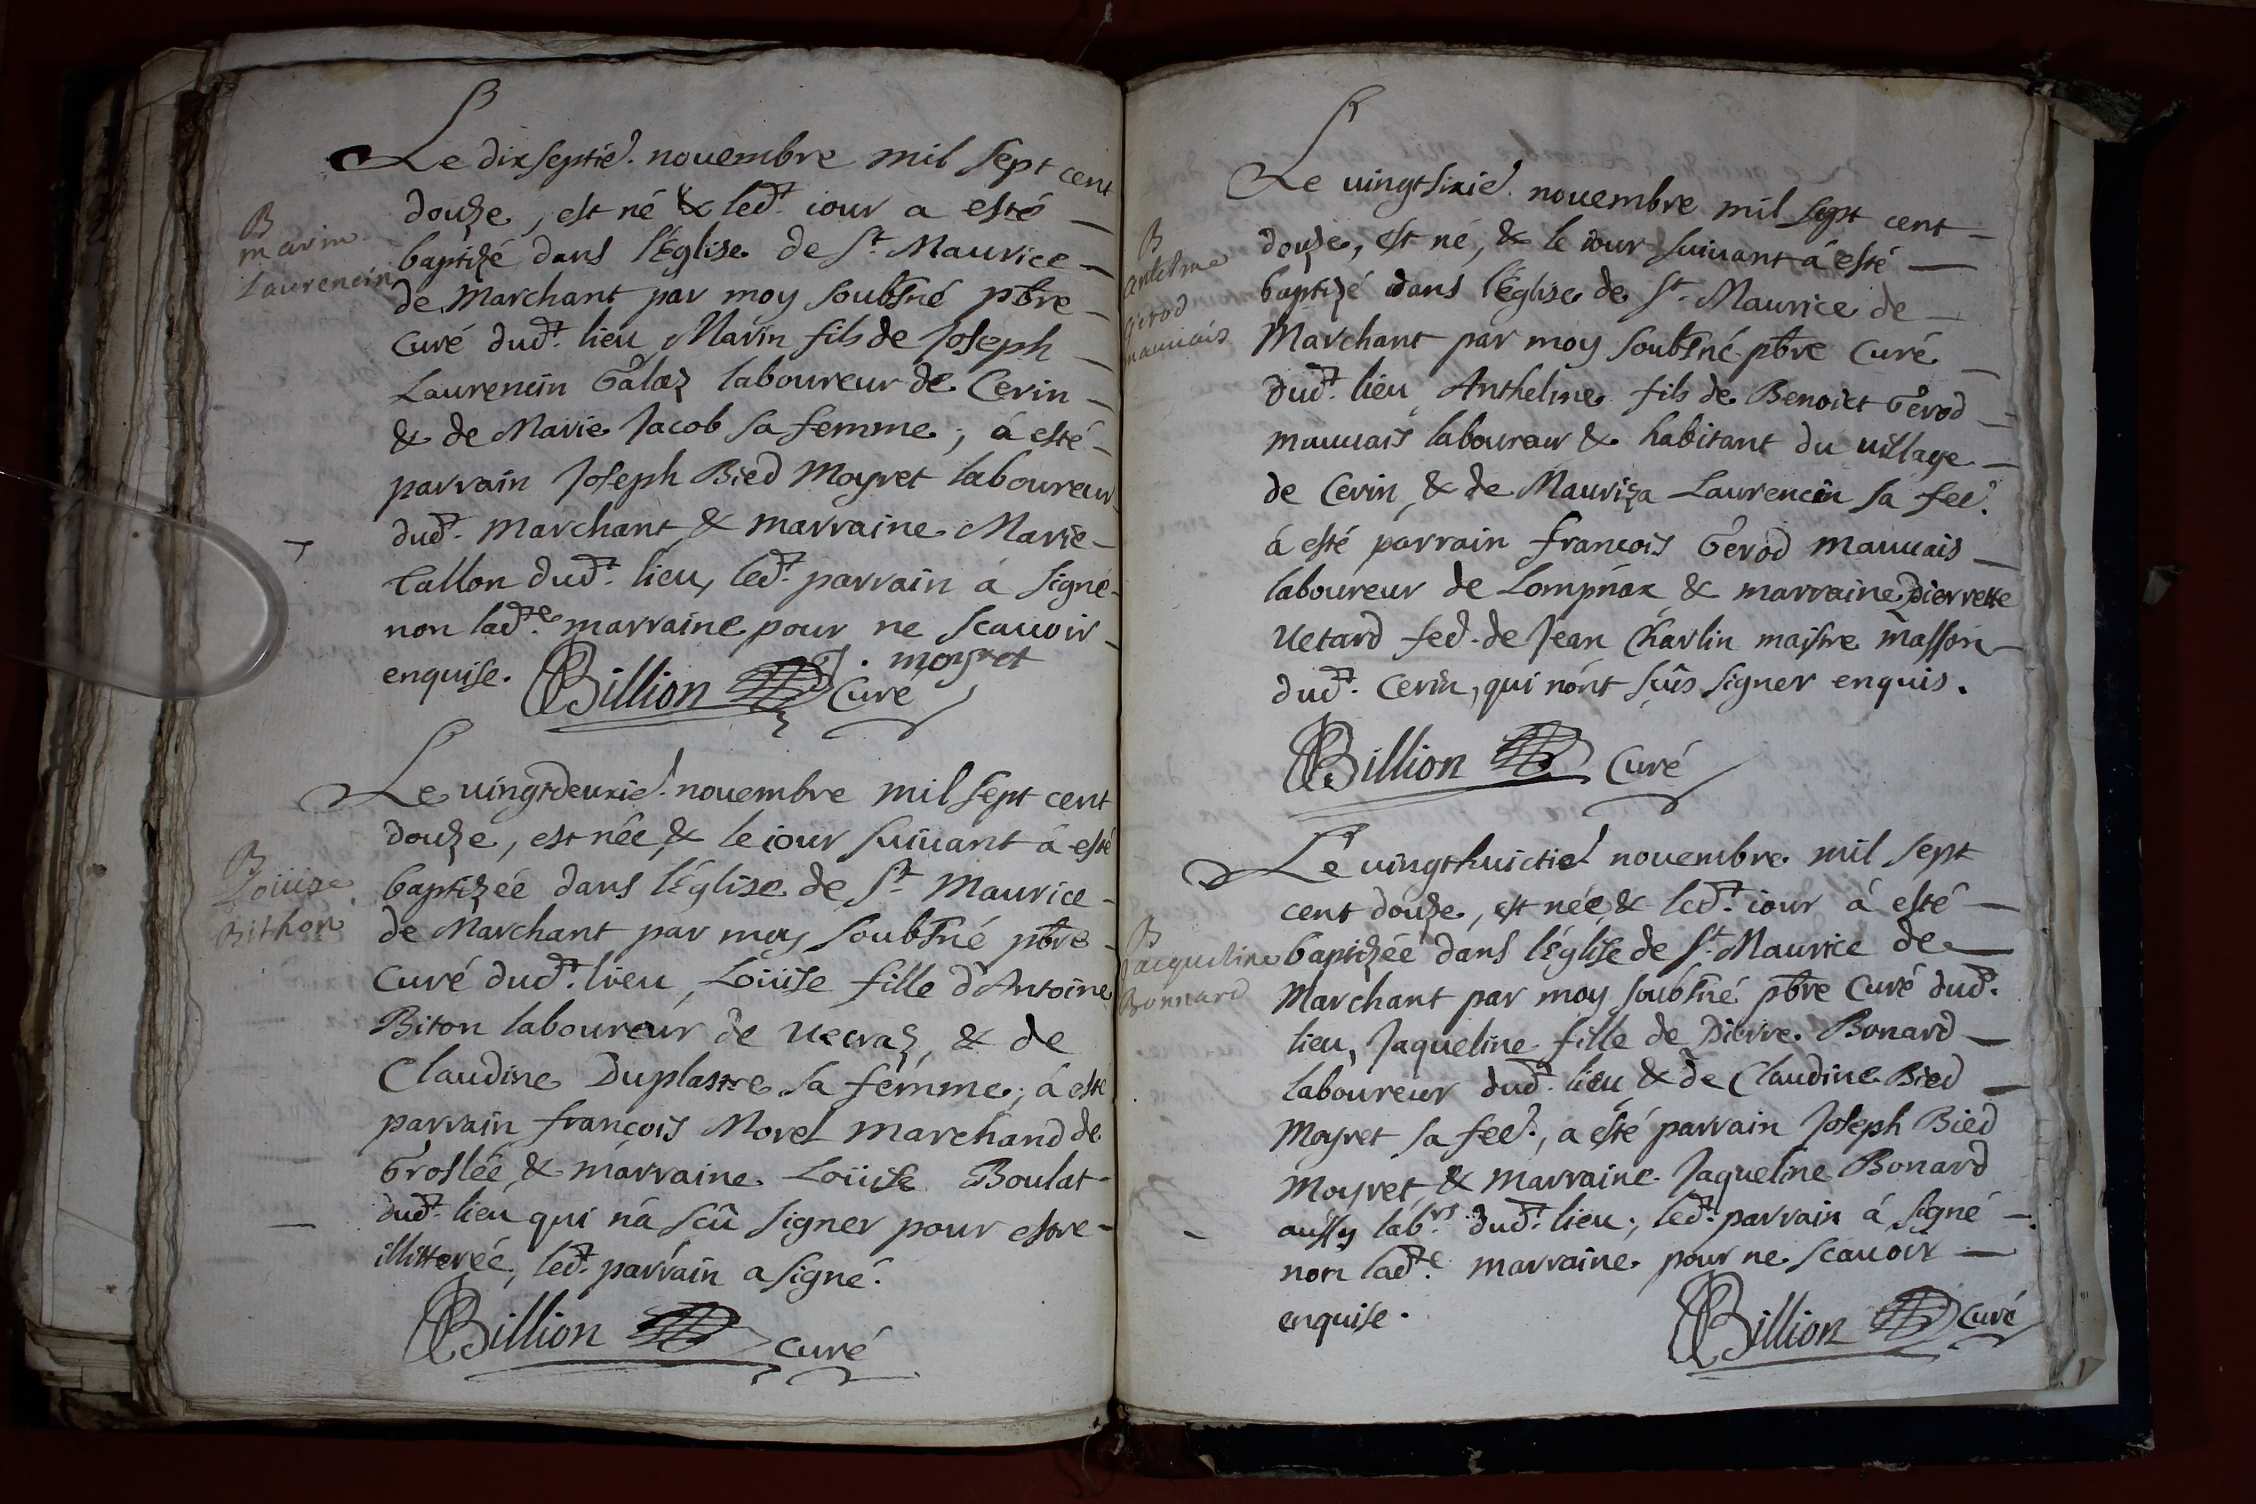 Le dixseptie. novembre mil sept cent
douze, est né & led.t iour a esté
B
marin
Laurencin
baptizé dans l'Eglise de S.t Maurice
de Marchant par moy soubsné pbre
Curé dud.t lieu, Marin fils de Joseph
Laurencin Galaz laboureur de Cerin
& de Marie Jacob sa femme; à esté
parrain Joseph Bied Moyret laboureur
dud.t Marchant & marraine Marie
Tallon dud.t lieu, led.t parrain à signé
non lad.te marraine pour ne scauoir
enquise.
J. moyret
Billion Curé
Le uingtdeuxie. nouembre mil sept cent
douze, est née & le iour suiuant à esté
B
Loüise
Bithon
baptizée dans l'Eglise de S.t Maurice
de Marchant par moy soubsné pbre
Curé dud.t lieu, Loüise fille d'Antoine
Biton laboureur de Uecraz, & de
Claudine Duplastre sa femme; à esté
parrain françois Morel marchand de
Groslée, & marraine Loüise Boulat
dud.t lieu qui n'a scû signer pour estre
illitterée, led.t parrain a signé.
Billion curé
Le uingtsixie. nouembre mil sept cent
douze, est né, & le iour suiuant à esté
B
antelme
Gerod
mauuais
baptizé dans l'Eglise de S.t Maurice de
Marchant par moy soubsné pbre Curé
dud.t lieu, Anthelme fils de Benoict Gerod
mauuais laboureur & habitant du uillage
de Cerin, & de Mauriza Laurencin sa fee.
à esté parrain françois Gerod mauuais
laboureur de Lompnax & marraine Pierrette
Uetard fee. de Jean Charlin maistre masson
dud.t Cerin, qui n'ont sçûs signer enquis.
Billion Curé
Le uingthuictie. nouembre mil sept
cent douze, est née & led.t iour à esté
B
Jacqueline
Bonnard
baptizée dans l'Eglise de S.t Maurice de
Marchant par moy soubsné pbre Curé dud.t
lieu, Jaqueline fille de Pierre Bonard
laboureur dud.t lieu & de Claudine Bied
Moyret sa fee., a esté parrain Joseph Bied
Moyret & marraine Jaqueline Bonard
aussy lab.rs dud.t lieu; led.t parrain à signé
non lad.te marraine pour ne scauoir
enquise.
Billion Curé